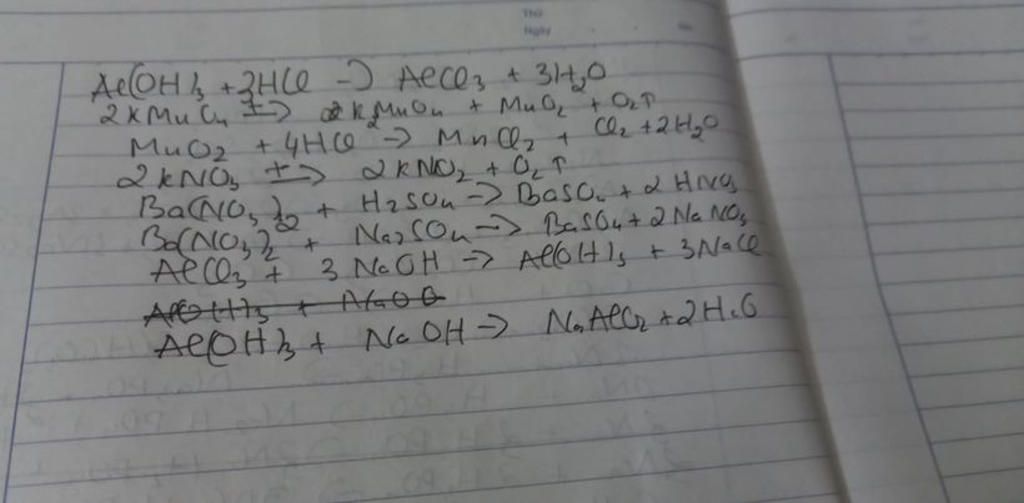 Thứ
Ngày
Al(OH)3 + 3HCl -> AlCl3 + 3H2O
2KMnO4 t-> K2MnO4 + MnO2 + O2↑
MnO2 + 4HCl -> MnCl2 + Cl2 + 2H2O
2KNO3 t-> 2KNO2 + O2↑
Ba(NO3)2 + H2SO4 -> BaSO4 + 2HNO3
Ba(NO3)2 + Na2SO4 -> BaSO4 + 2NaNO3
AlCl3 + 3NaOH -> Al(OH)3 + 3NaCl
Al(OH)3 + NaOH -> NaAlO2 + 2H2O